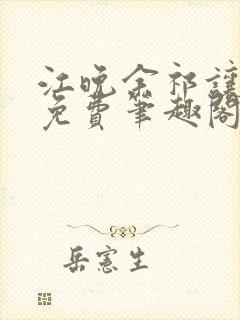 江晚余祁让
免费笔趣阁
岳宪生